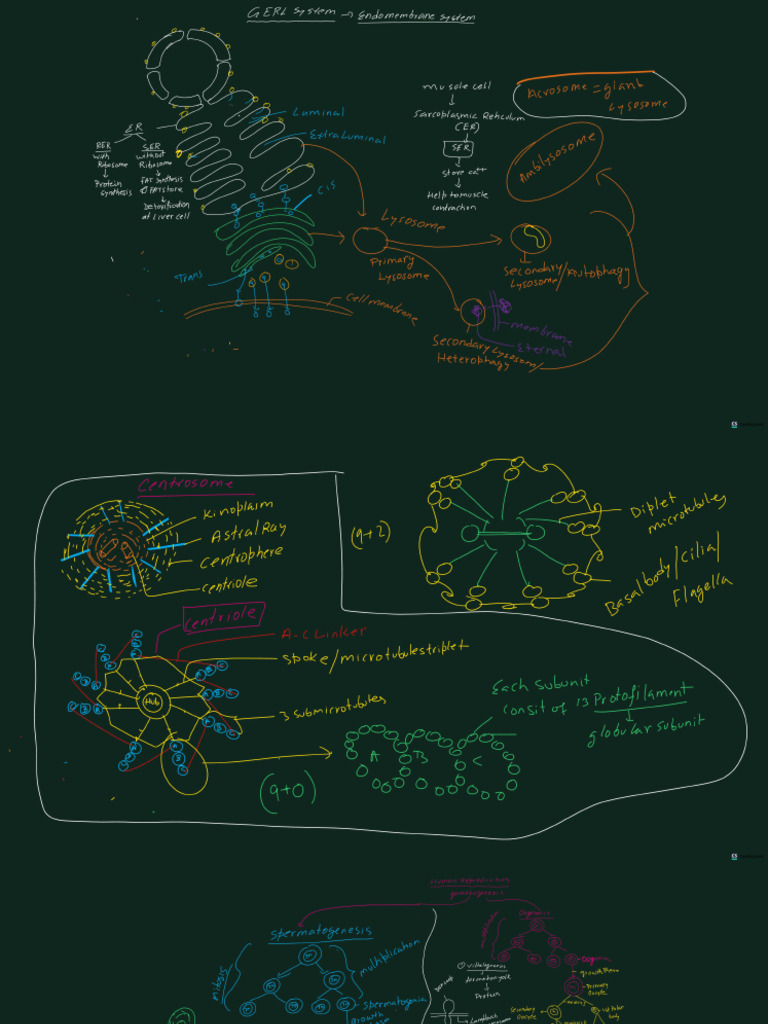 GERL system → Endomembrane system
Luminal
Extraluminal
ER
RER
with
Ribosome
Protein
synthesis
SER
without
Ribosome
FAT synthesis
FAT store
Detoxification
at liver cell
Cis
Trans
Cell membrane
Lysosome
Primary
Lysosome
muscle cell
Sarcoplasmic Reticulum
(ER)
SER
store ca++
Help to muscle
contraction
Acrosome = giant
Lysosome
Ambilysosome
Secondary/Autophagy
Lysosome
membrane
Eternal
Secondary Lysosom/
Heterophagy
Centrosome
Kinoplasm
Astral Ray
Centrophere
centriole
(9+2)
Diplet
microtubules
Basalbody/Cilia/
Flagella
Centriole
A-C Linker
Spoke/microtubulestriplet
Hub
3 submicrotubules
Each subunit
consit of 13 Protofilament
globular subunit
A B C
(9+0)
gametogenesis
spermatogenesis
mitosis
multiplication
spermatogonia
growth
Oogenesis
multiplication
Vitellogenesis
Protein
growth Phase
Primary
Oocyte
Secondary
Oocyte